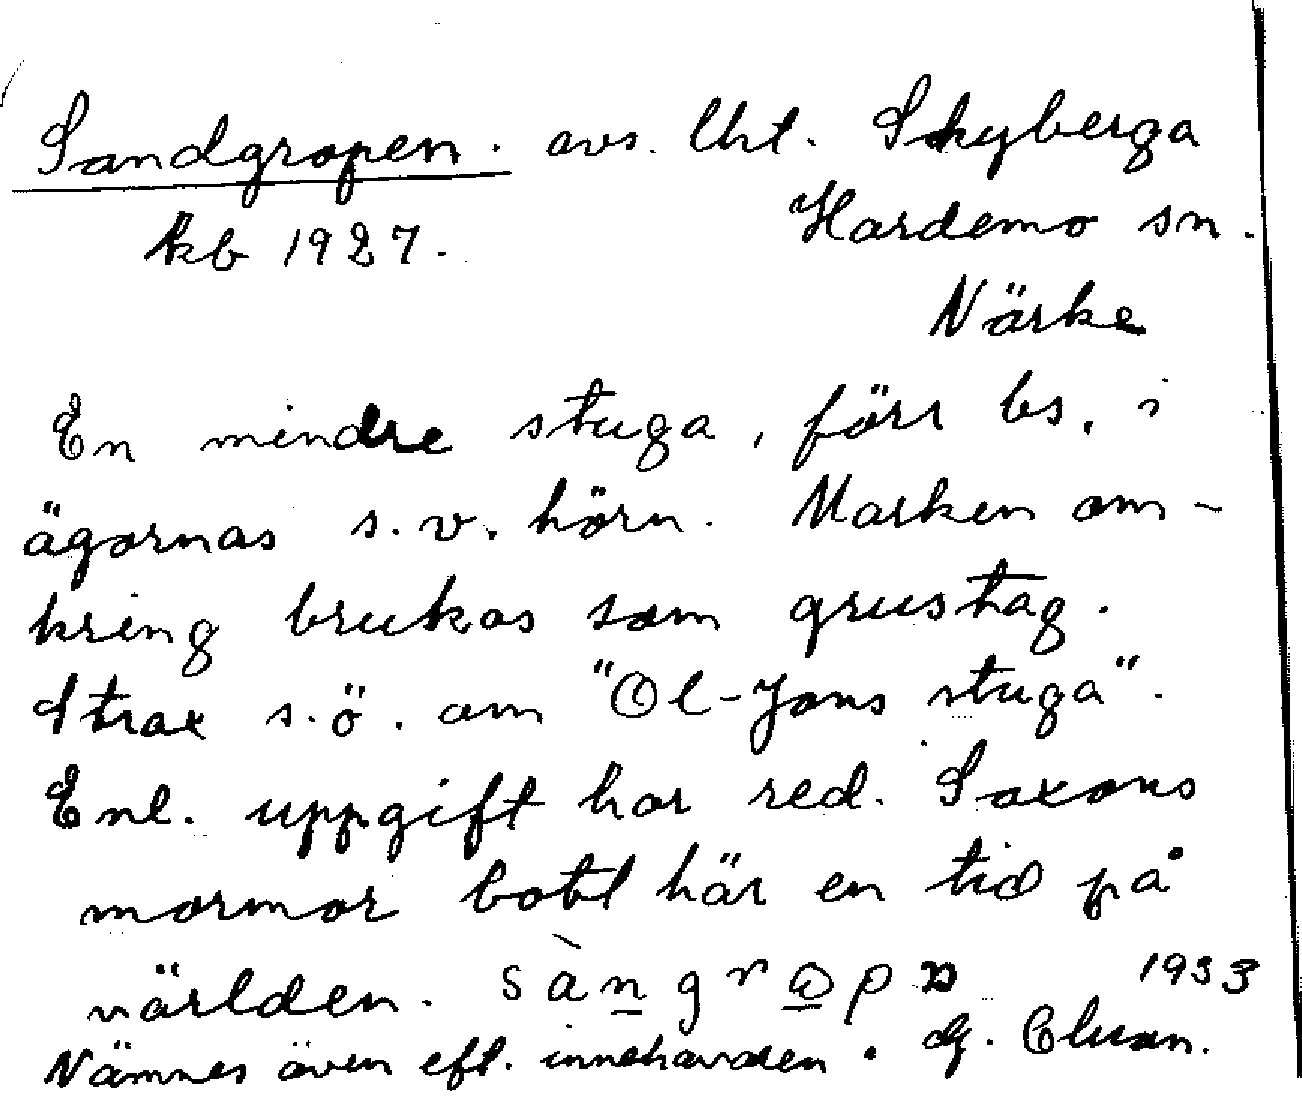 Sandgropen. avs. Uht. Skyberga
kb 1927. Hardemo sn.
Närke
En mindre stuga, förr bs. i
ägornas s.v. hörn. Marken om-
kring brukas som grustag.
Strax s.ö. om "Ol-Jans stuga".
Enl. uppgift har red. Saxons
mormor bott här en tid på
världen. 1933
Nämnes även eft. innehavaren. G.